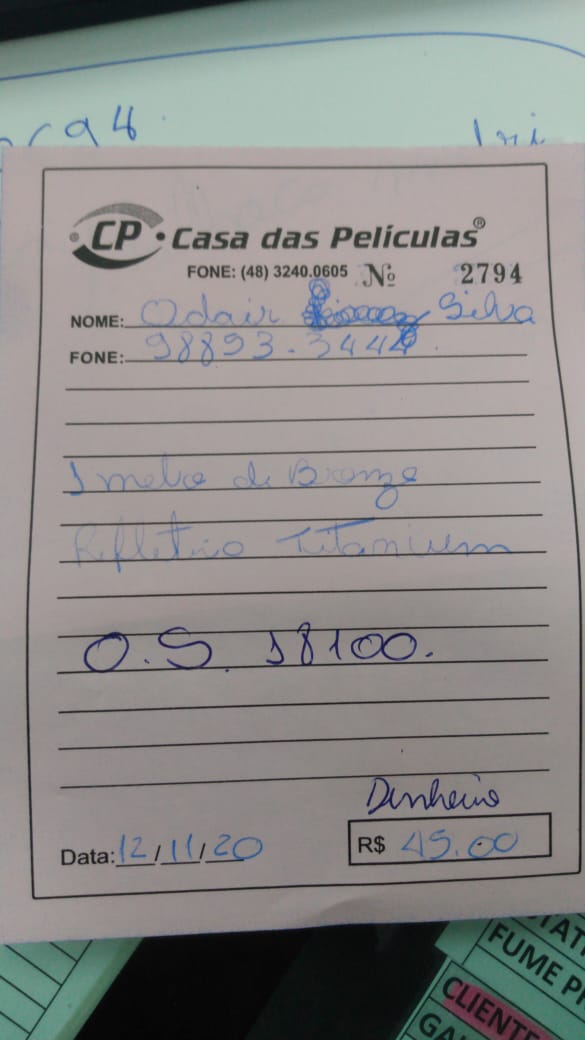 CP Casa das Películas®
FONE: (48) 3240.0605 Nº 2794
NOME: Odair Silva
FONE: 98893-3444
1 metro de Bronze
Refletivo Titanium
O.S. 18100.
Dinheiro
Data: 12/11/20 R$ 45.00
FUME
CLIENTE